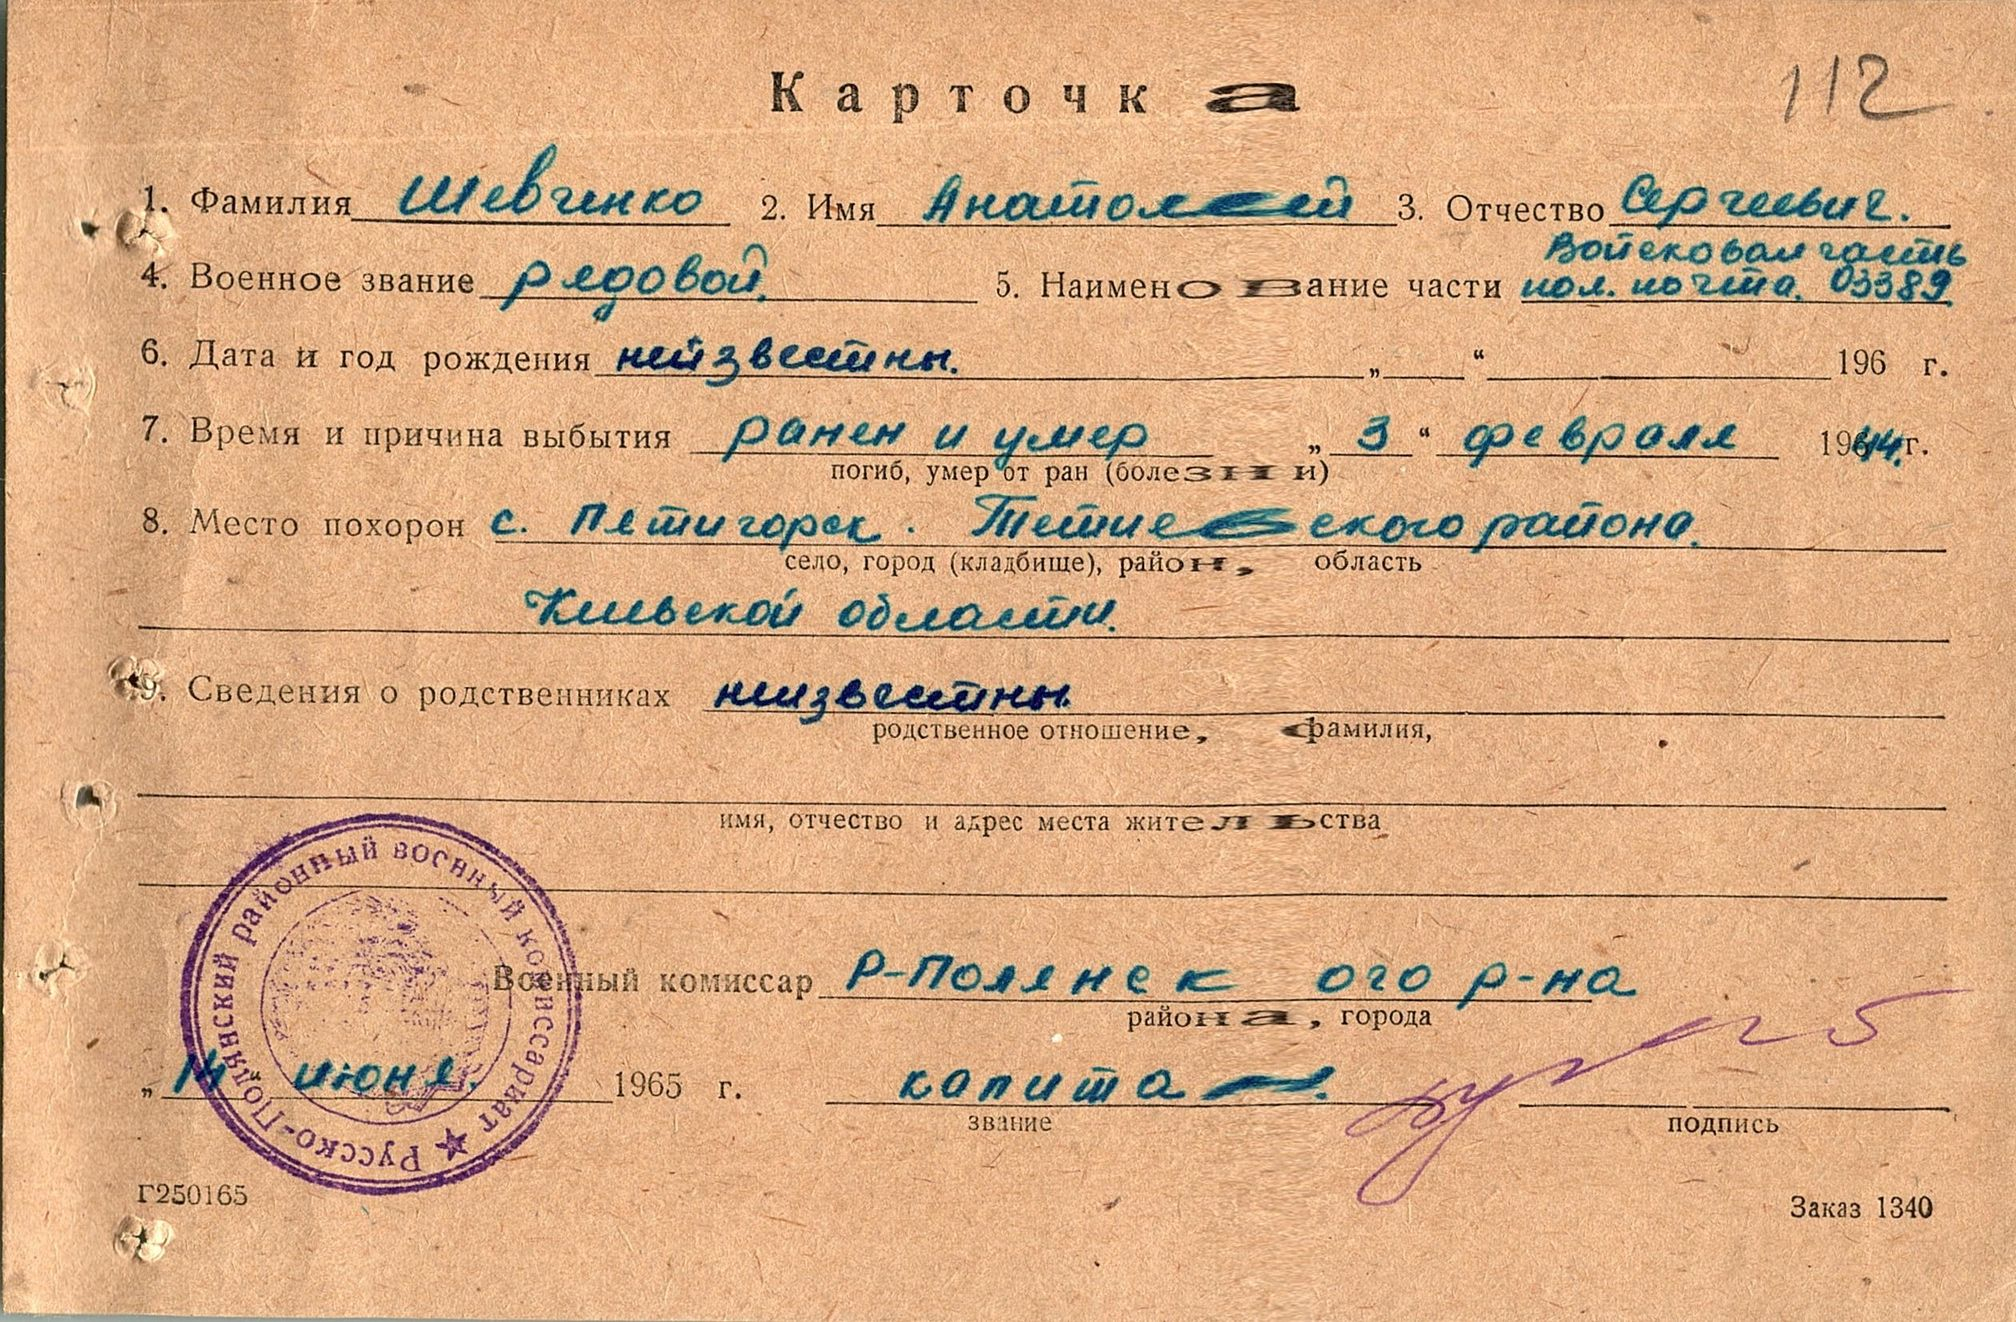 112
Карточка
1. Фамилия Шевченко 2. Имя Анатолий 3. Отчество Сергеевич.
Войсковая часть
4. Военное звание рядовой. 5. Наименование части пол. почта. 03389
6. Дата и год рождения неизвестны. „ “ 196 г.
7. Время и причина выбытия ранен и умер „ 3 “ февраля 1944 г.
погиб, умер от ран (болезни)
8. Место похорон с. Пятигорск. Тетиевского района.
село, город (кладбище), район, область
Киевской области.
9. Сведения о родственниках неизвестны.
родственное отношение, фамилия,
имя, отчество и адрес места жительства
Военный комиссар Р-Полянского р-на
района, города
„ 14 “ июня. 1965 г. капитан.
звание подпись
Русско-Полянский районный военный комиссариат
Г250165 Заказ 1340